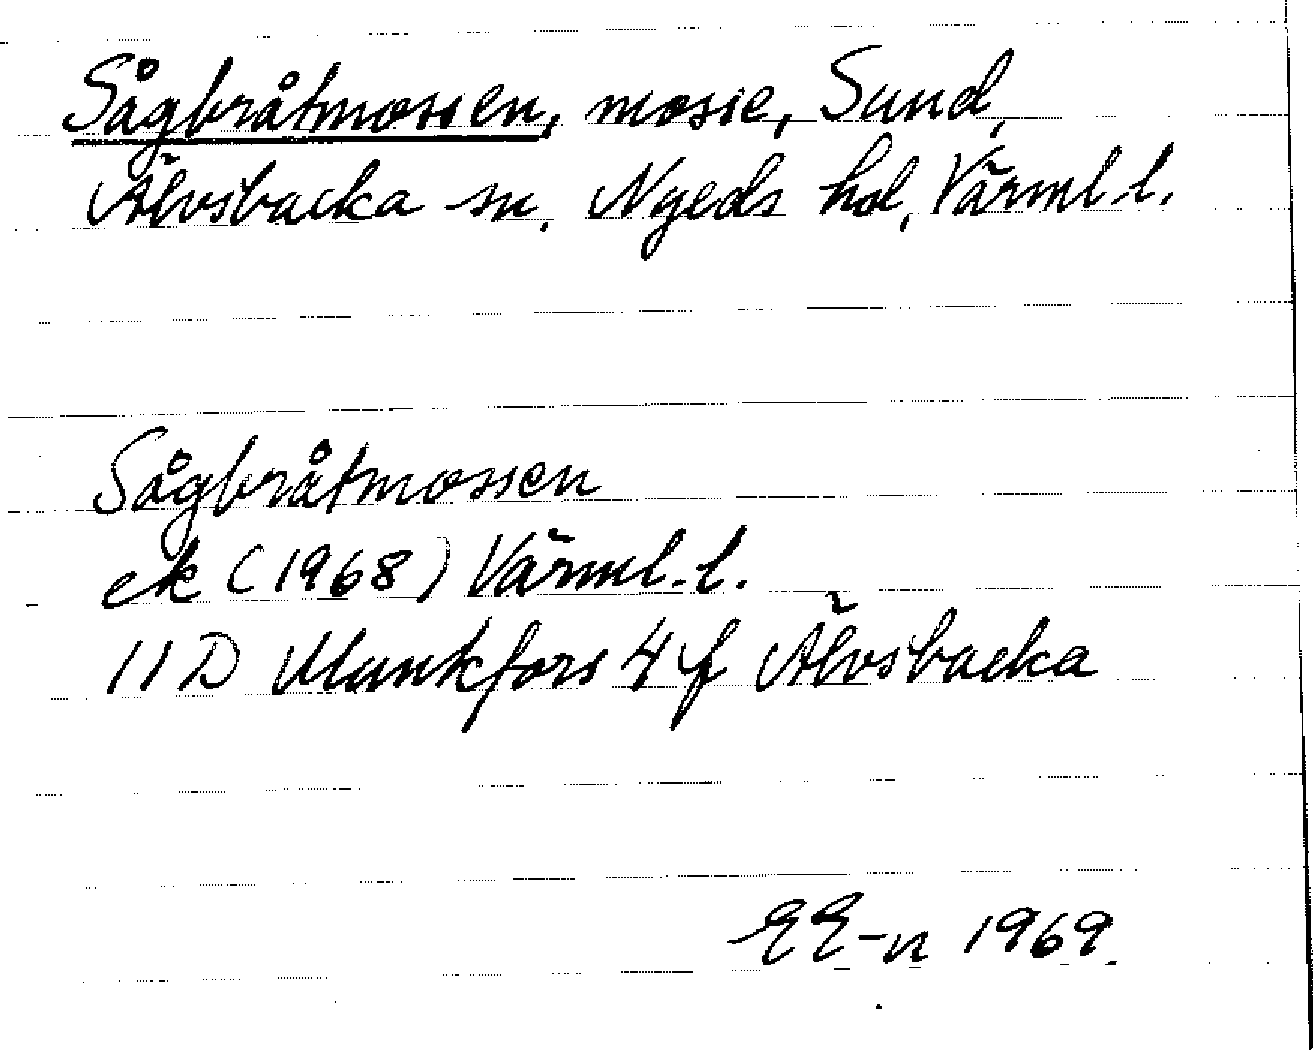 Sågbråtmossen, mosse, Sund,
Älvsbacka sn, Nyeds hd, Värml. l.
Sågbråtmossen
ek (1968) Värml. l.
11 D Munkfors 4 f Älvsbacka
EE-n 1969.